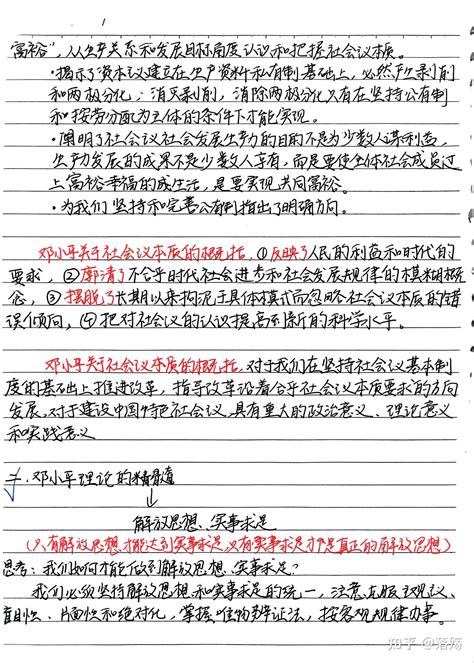 富裕”，从生产关系和发展目标角度认识和把握社会议本质。
·揭示了资本议建立在生产资料私有制基础上，必然产生剥削
和两极分化；消灭剥削，消除两极分化只有在坚持公有制
和按劳分配为主体的条件下才能实现。
·阐明了社会议社会发展生产力的目的不是为少数人谋利益，
生产力发展的成果不是少数人享有，而是要使全体社会成员过
上富裕幸福的成生活，是要实现共同富裕。
·为我们坚持和完善公有制指出了明确方向。
邓小平关于社会议本质的概括，①反映了人民的利益和时代的
要求，②廓清了不合乎时代社会进步和社会发展规律的模糊概
念，③摆脱了长期以来拘泥于具体模式而忽略社会议本质的错
误倾向，④把对社会议的认识提高到新的科学水平。
邓小平关于社会议本质的概括，对于我们在坚持社会议基本制
度的基础上推进改革，指导改革沿着合乎社会议本质要求的方向
发展，对于建设中国特色社会议，具有重大的政治意义、理论意义
和实践意义
二.邓小平理论的精髓
解放思想、实事求是
（只有解放思想，才能达到实事求是，只有实事求是才是真正的解放思想）
思考：我们如何才能做到解放思想、实事求是？
我们必须坚持解放思想和实事求是的统一，注意克服主观议、
盲目性、片面性和绝对化，掌握唯物辩证法，按客观规律办事。
知乎 @落殇